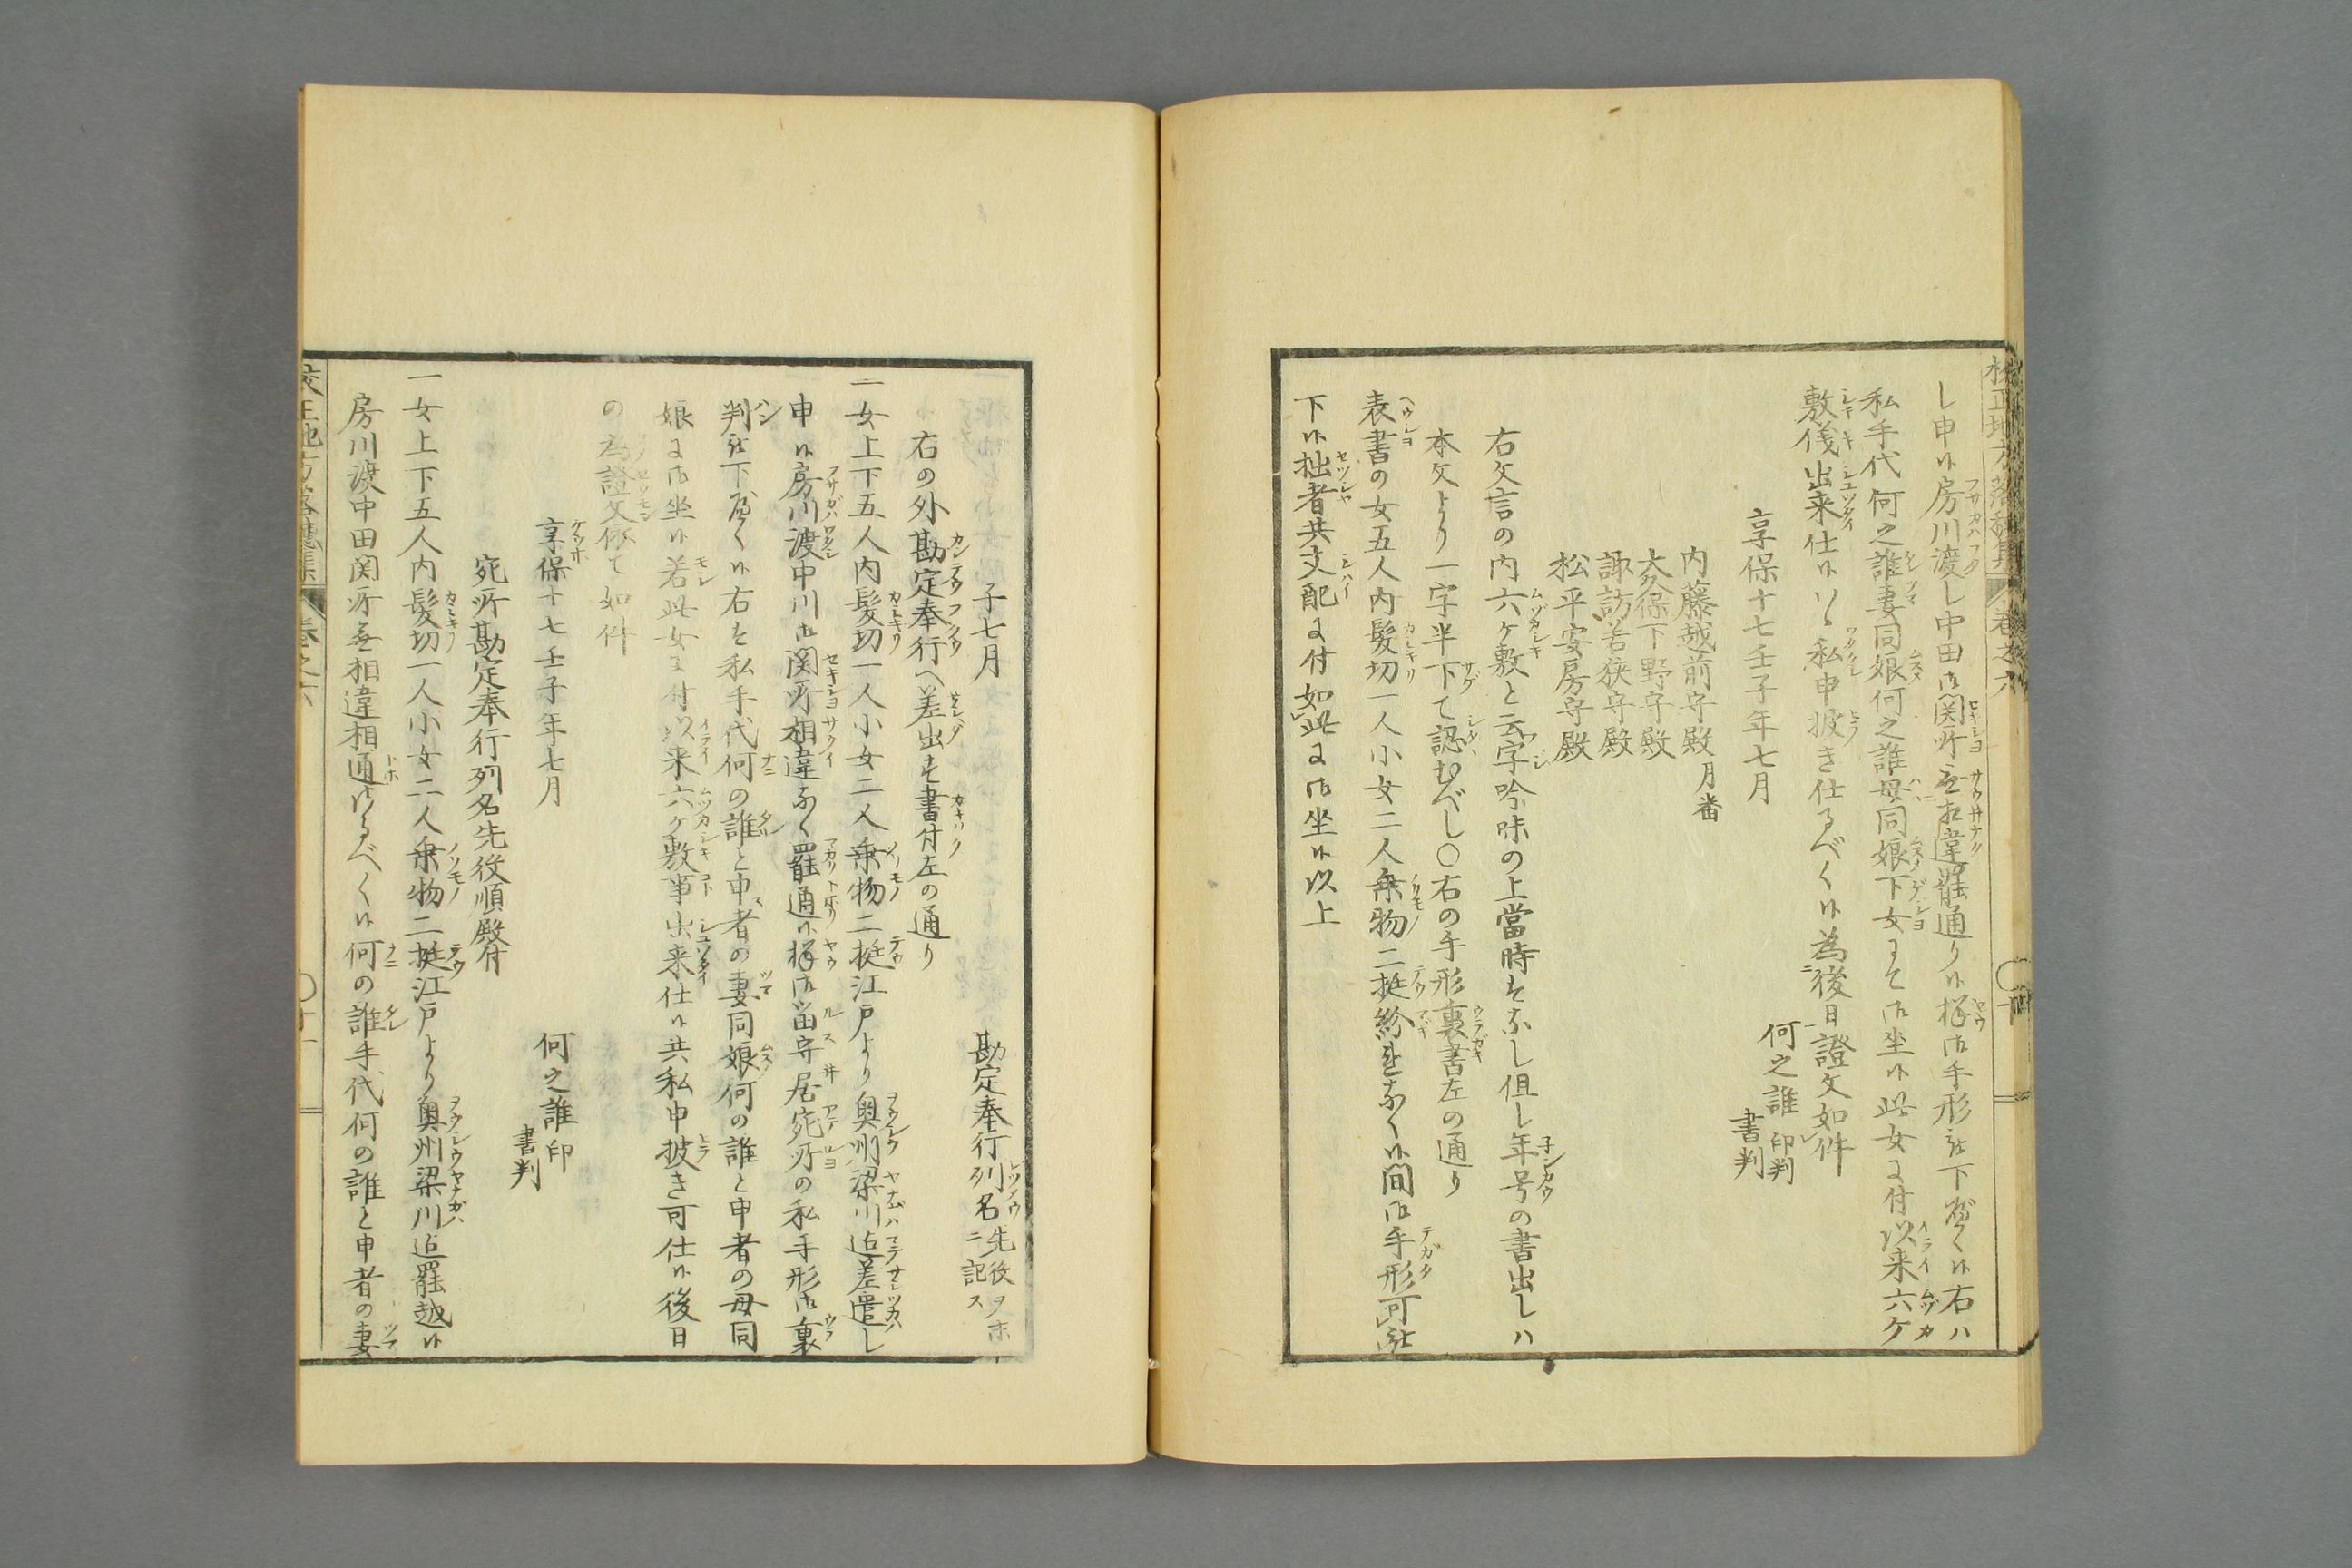 校正地方落穂集 巻之六
し申候房川渡し中田御関所無相違罷通り候様御手形被下度候右ハ
私手代何之誰妻同娘何之誰母同娘下女にて御坐候此女に付以来六ケ
敷儀出来仕候ハヽ私申披き仕るべく候為後日證文如件
享保十七壬子年七月
何之誰 印判
書判
内藤越前守殿 月番
大久保下野守殿
諏訪若狭守殿
松平安房守殿
右文言の内六ケ敷と云字吟味の上當時はなし但し年号の書出しハ
本文より一字半下て認むべし〇右の手形裏書左の通り
表書の女五人内髪切一人小女二人乗物二挺紛なく候間御手形可被
下候拙者共支配に付如此に御坐候以上
子七月
勘定奉行列名 先役ヲホニ記ス
右の外勘定奉行へ差出す書付左の通り
一女上下五人内髪切一人小女二人乗物二挺江戸より奥州梁川迄差遣し
申候房川渡中川御関所相違なく罷通候様御留守居宛所の私手形御裏
判被下度く候右は私手代何の誰と申者の妻同娘何の誰と申者の母同
娘に御坐候若此女に付以来六ケ敷事出来仕候共私申披き可仕候後日
の為證文依て如件
享保十七壬子年七月
何之誰 印
書判
宛所勘定奉行列名先役順殿付
一女上下五人内髪切一人小女二人乗物二挺江戸より奥州梁川迄罷越候
房川渡中田関所無相違相通けるべく候何の誰手代何の誰と申者の妻
校正地方落穂集 巻之六